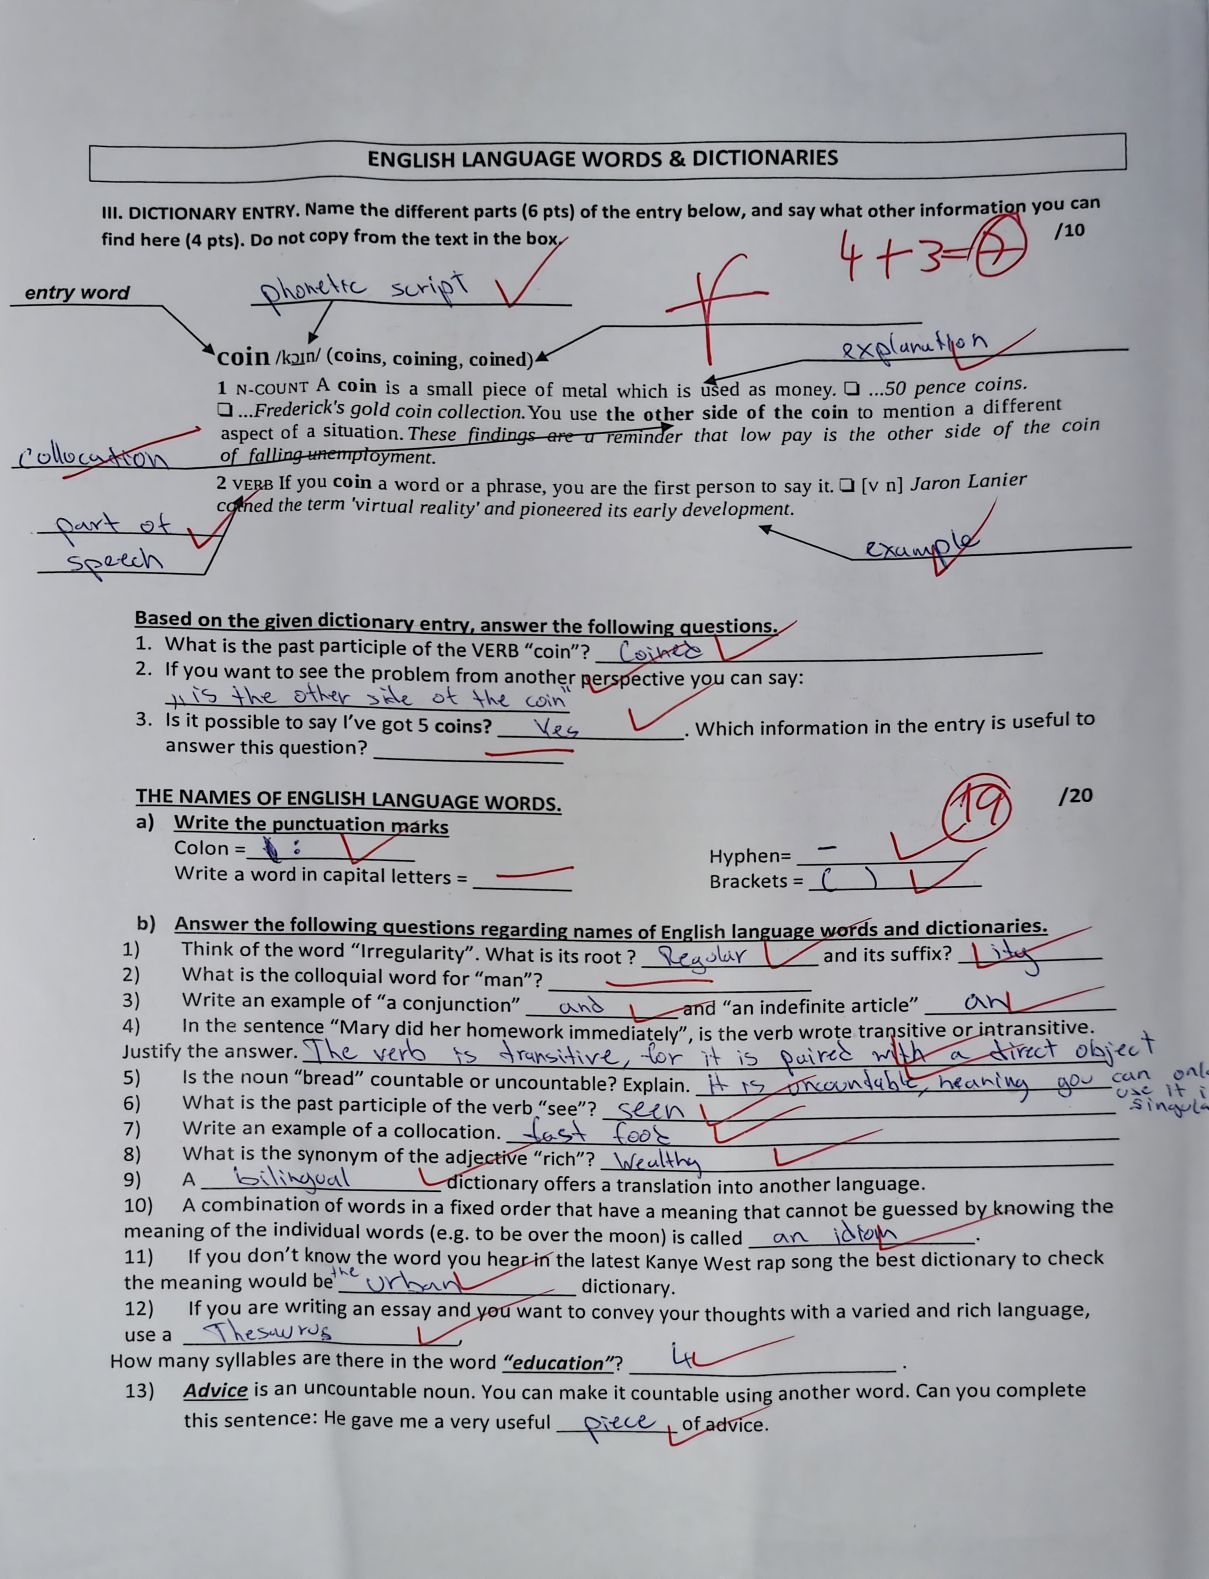 ENGLISH LANGUAGE WORDS & DICTIONARIES
III. DICTIONARY ENTRY. Name the different parts (6 pts) of the entry below, and say what other information you can
find here (4 pts). Do not copy from the text in the box.
/10
4+3=7
entry word
phonetic script
explanation
coin /kɔɪn/ (coins, coining, coined)
1 N-COUNT A coin is a small piece of metal which is used as money. ❑ ...50 pence coins.
❑ ...Frederick's gold coin collection. You use the other side of the coin to mention a different
aspect of a situation. These findings are a reminder that low pay is the other side of the coin
of falling unemployment.
collocation
2 VERB If you coin a word or a phrase, you are the first person to say it. ❑ [v n] Jaron Lanier
coined the term 'virtual reality' and pioneered its early development.
part of
speech
example
Based on the given dictionary entry, answer the following questions.
1. What is the past participle of the VERB "coin"? Coined
2. If you want to see the problem from another perspective you can say:
„is the other side of the coin"
3. Is it possible to say I've got 5 coins? Yes. Which information in the entry is useful to
answer this question?
THE NAMES OF ENGLISH LANGUAGE WORDS.
19 /20
a) Write the punctuation marks
Colon = :
Hyphen= –
Write a word in capital letters =
Brackets = ( )
b) Answer the following questions regarding names of English language words and dictionaries.
1) Think of the word "Irregularity". What is its root ? Regular and its suffix? ity
2) What is the colloquial word for "man"?
3) Write an example of "a conjunction" and and "an indefinite article" an
4) In the sentence "Mary did her homework immediately", is the verb wrote transitive or intransitive.
Justify the answer. The verb is transitive, for it is paired with a direct object
5) Is the noun "bread" countable or uncountable? Explain. it is uncountable, meaning you can
use it
6) What is the past participle of the verb "see"? seen
7) Write an example of a collocation. fast food
8) What is the synonym of the adjective "rich"? Wealthy
9) A bilingual dictionary offers a translation into another language.
10) A combination of words in a fixed order that have a meaning that cannot be guessed by knowing the
meaning of the individual words (e.g. to be over the moon) is called an idiom.
11) If you don't know the word you hear in the latest Kanye West rap song the best dictionary to check
the meaning would be the urban dictionary.
12) If you are writing an essay and you want to convey your thoughts with a varied and rich language,
use a Thesaurus,
How many syllables are there in the word "education"? 4.
13) Advice is an uncountable noun. You can make it countable using another word. Can you complete
this sentence: He gave me a very useful piece of advice.